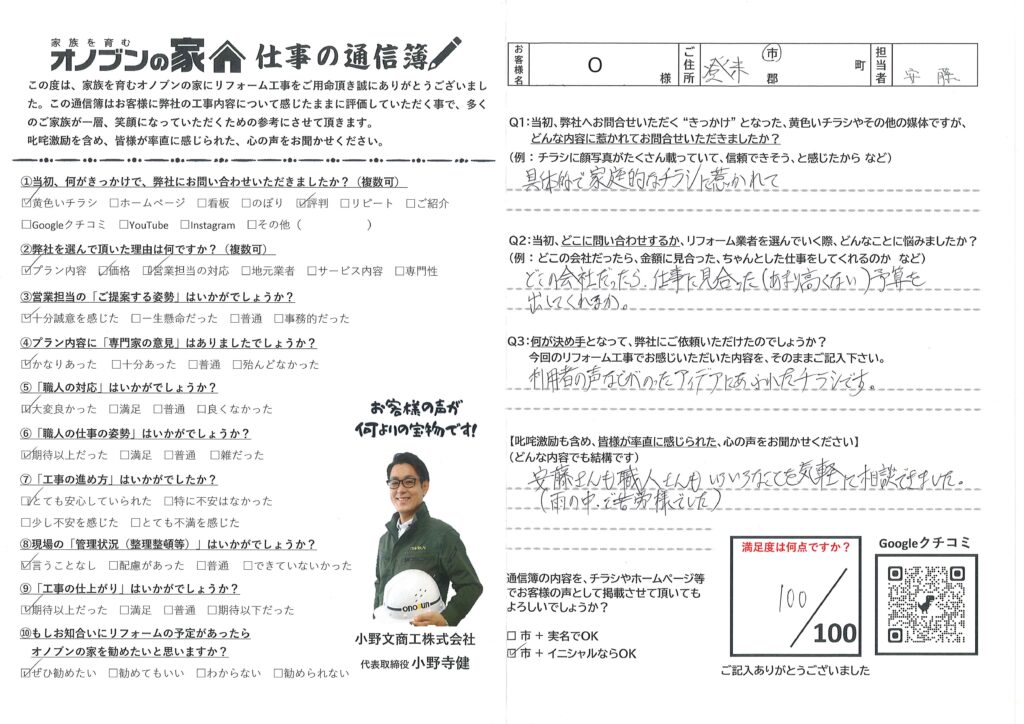 家族を育む
オノブンの家 仕事の通信簿
この度は、家族を育むオノブンの家にリフォーム工事をご用命頂き誠にありがとうございまし
た。この通信簿はお客様に弊社の工事内容について感じたままに評価していただく事で、多く
のご家族が一層、笑顔になっていただくための参考にさせて頂きます。
叱咤激励を含め、皆様が率直に感じられた、心の声をお聞かせください。
①当初、何がきっかけで、弊社にお問い合わせいただきましたか？（複数可）
☑黄色いチラシ □ホームページ □看板 □のぼり ☑評判 □リピート □ご紹介
□Googleクチコミ □YouTube □Instagram □その他（ ）
②弊社を選んで頂いた理由は何ですか？（複数可）
☑プラン内容 ☑価格 ☑営業担当の対応 □地元業者 □サービス内容 □専門性
③営業担当の「ご提案する姿勢」はいかがでしょうか？
☑十分誠意を感じた □一生懸命だった □普通 □事務的だった
④プラン内容に「専門家の意見」はありましたでしょうか？
☑かなりあった □十分あった □普通 □殆んどなかった
⑤「職人の対応」はいかがでしょうか？
☑大変良かった □満足 □普通 □良くなかった
⑥「職人の仕事の姿勢」はいかがでしょうか？
☑期待以上だった □満足 □普通 □雑だった
⑦「工事の進め方」はいかがでしたか？
☑とても安心していられた □特に不安はなかった
□少し不安を感じた □とても不満を感じた
⑧現場の「管理状況（整理整頓等）」はいかがでしょうか？
☑言うことなし □配慮があった □普通 □できていないかった
⑨「工事の仕上がり」はいかがでしょうか？
☑期待以上だった □満足 □普通 □期待以下だった
⑩もしお知合いにリフォームの予定があったら
オノブンの家を勧めたいと思いますか？
☑ぜひ勧めたい □勧めてもいい □わからない □勧められない
お客様の声が
何よりの宝物です！
onobun
小野文商工株式会社
代表取締役 小野寺健
お客様名 O 様 ご住所 登米 市 郡 町 担当者 安藤
Q1：当初、弊社へお問合せいただく“きっかけ”となった、黄色いチラシやその他の媒体ですが、
どんな内容に惹かれてお問合せいただきましたか？
（例：チラシに顔写真がたくさん載っていて、信頼できそう、と感じたから など）
具体的で家庭的なチラシに惹かれて
Q2：当初、どこに問い合わせするか、リフォーム業者を選んでいく際、どんなことに悩みましたか？
（例：どこの会社だったら、金額に見合った、ちゃんとした仕事をしてくれるのか など）
どこの会社だったら、仕事に見合った（あまり高くない）予算を
出してくれるか。
Q3：何が決め手となって、弊社にご依頼いただけたのでしょうか？
今回のリフォーム工事でお感じいただいた内容を、そのままご記入下さい。
利用者の声などがのったアイデアにあふれたチラシです。
【叱咤激励も含め、皆様が率直に感じられた、心の声をお聞かせください】
（どんな内容でも結構です）
安藤さんも職人さんもいろいろなことを気軽に相談できました。
（雨の中、ご苦労様でした）
通信簿の内容を、チラシやホームページ等
でお客様の声として掲載させて頂いても
よろしいでしょうか？
□ 市 + 実名でOK
☑ 市 + イニシャルならOK
満足度は何点ですか？
100／100
Googleクチコミ
ご記入ありがとうございました